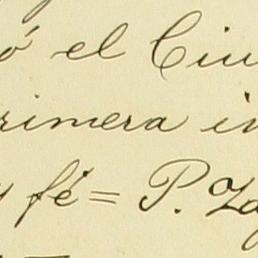 ó el Ciu
rimera in
y fé = P. Za